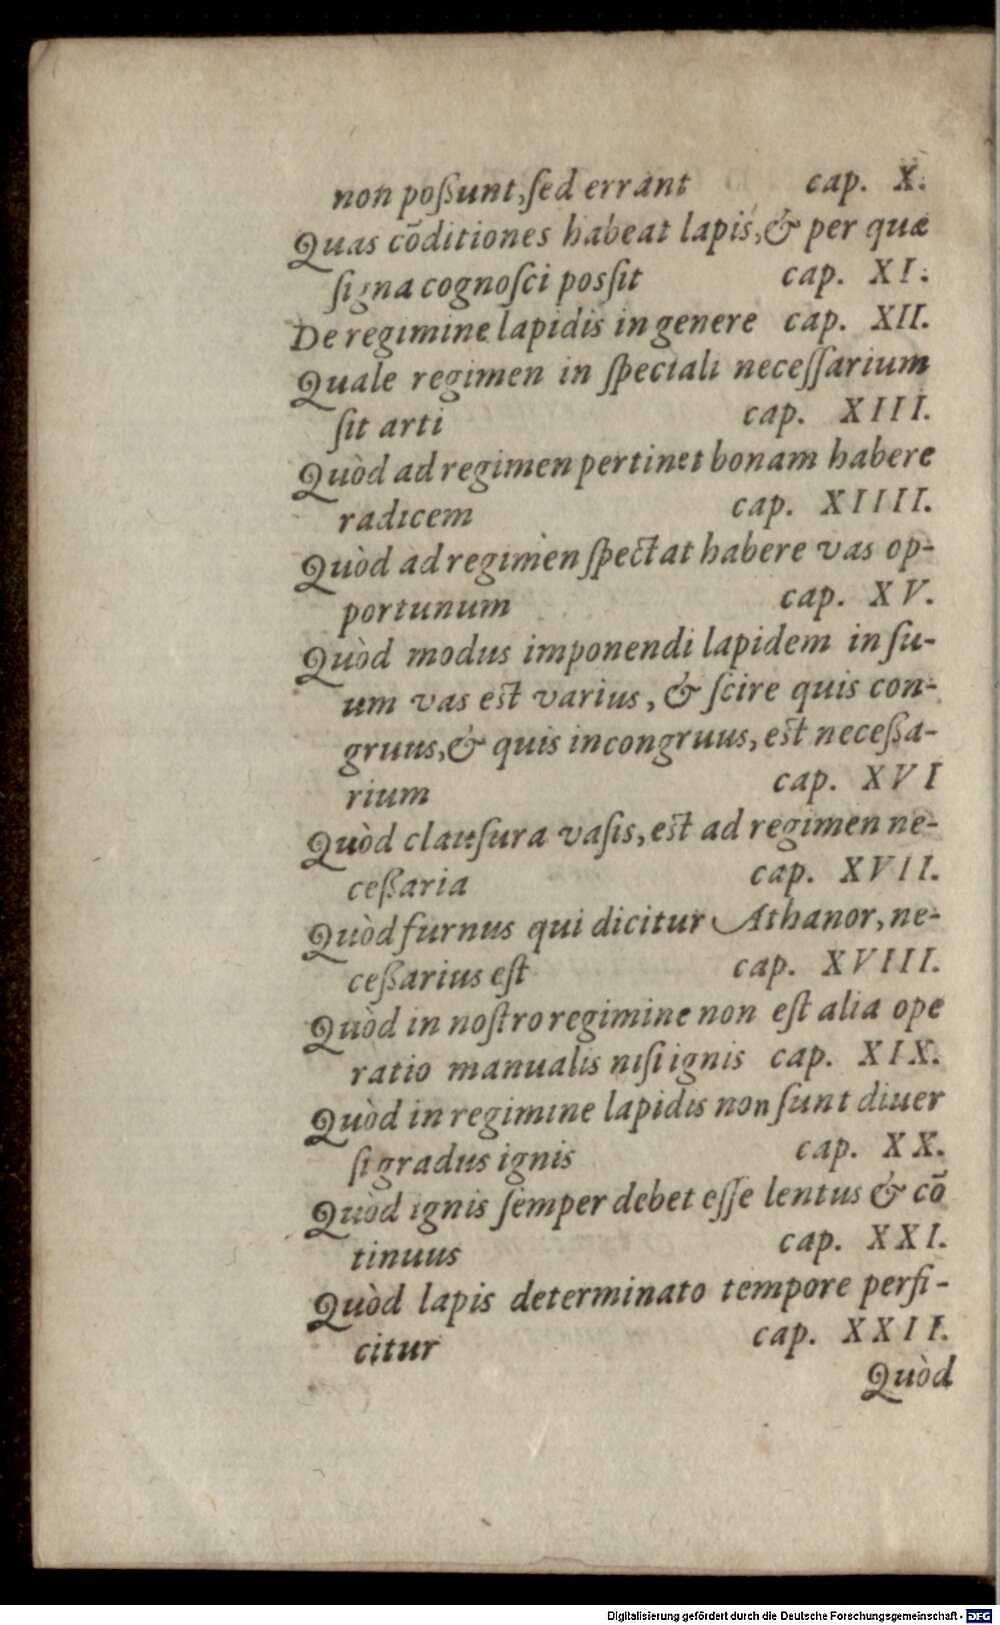 non poßunt, ſed errant cap. X.
Quas cōditiones habeat lapis, & per quæ
ſigna cognoſci poſſit cap. XI.
De regimine lapidis in genere cap. XII.
Quale regimen in ſpeciali neceſſarium
ſit arti cap. XIII.
Quòd ad regimen pertinet bonam habere
radicem cap. XIIII.
Quòd ad regimen ſpectat habere vas op-
portunum cap. XV.
Quòd modus imponendi lapidem in ſu-
um vas eſt varius, & ſcire quis con-
gruus, & quis incongruus, eſt neceßa-
rium cap. XVI
Quòd clauſura vaſis, eſt ad regimen ne-
ceßaria cap. XVII.
Quòd furnus qui dicitur Athanor, ne-
ceßarius eſt cap. XVIII.
Quòd in noſtro regimine non eſt alia ope
ratio manualis niſi ignis cap. XIX.
Quòd in regimine lapidis non ſunt diuer
ſi gradus ignis cap. XX.
Quòd ignis ſemper debet eſſe lentus & cō
tinuus cap. XXI.
Quòd lapis determinato tempore perfi-
citur cap. XXII.
Quòd
Digitalisierung gefördert durch die Deutsche Forschungsgemeinschaft - DFG